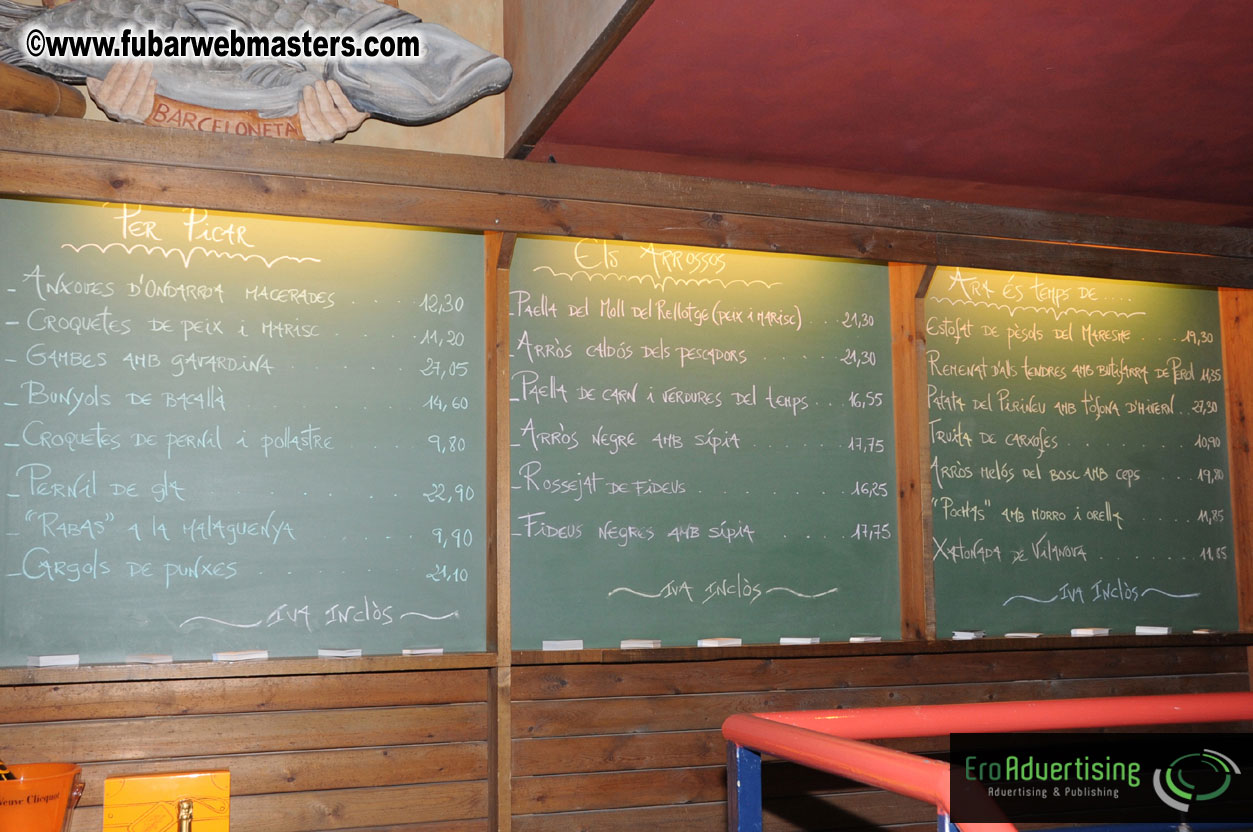 ©www.fubarwebmasters.com
BARCELONETA
Per Picar
- Anxoves d'Ondarroa macerades ........ 12,30
- Croquetes de peix i marisc ........ 11,20
- Gambes amb gavardina ........ 27,05
- Bunyols de bacallà ........ 14,60
- Croquetes de pernil i pollastre ........ 9,80
- Pernil de gla ........ 22,90
- "Rabas" a la malaguenya ........ 9,90
- Cargols de punxes ........ 21,10
IVA Inclòs
Els Arrossos
- Paella del Moll del Rellotge (peix i marisc) .... 21,30
- Arròs caldós dels pescadors ........ 21,30
- Paella de carn i verdures del temps .... 16,55
- Arròs negre amb sípia ........ 17,75
- Rossejat de fideus ........ 16,25
- Fideus negres amb sípia ........ 17,75
IVA Inclòs
Ara és temps de ....
Estofat de pèsols del Maresme ..... 19,30
Remenat d'alls tendres amb butifarra de Perol 11,35
Patata del Pirineu amb tòfona d'hivern .. 27,30
Truita de carxofes ........ 10,90
Arròs melós del bosc amb ceps ..... 19,80
"Pochas" amb morro i orella ..... 11,85
Xatonada de Vilanova ........ 11,85
IVA Inclòs
Veuve Clicquot
EroAdvertising
Advertising & Publishing